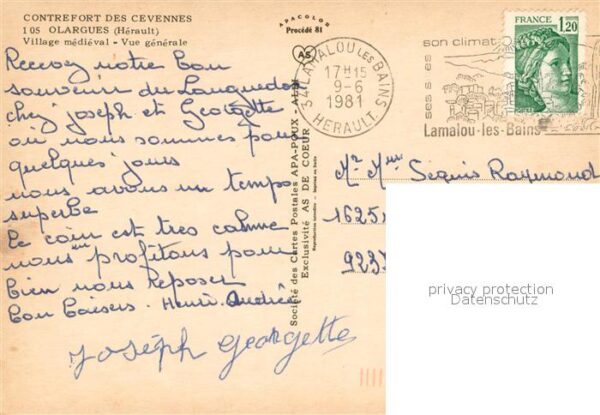 CONTREFORT DES CEVENNES
105 OLARGUES (Hérault)
Village médiéval - Vue générale
APACOLOR
Procédé 81
AS
Recevez notre bon
souvenir du Languedoc
chez joseph et Georgette
où nous sommes pour
quelques jours
nous avons un temps
superbe
le coin est tres calme
nous profitons pour
bien nous reposer
Bon baisers. Henri. Andrée
Joseph Georgette
Société des Cartes Postales APA-POUX - ALBI
Exclusivité AS DE COEUR
Reproduction interdite - Imprimé en
34 LAMALOU LES BAINS
17 H 15
9-6
1981
HERAULT
son climat
ses
Lamalou-les-Bains
FRANCE
1,20
Mr Mme Seguis Raymond
1625
923
privacy protection
Datenschutz